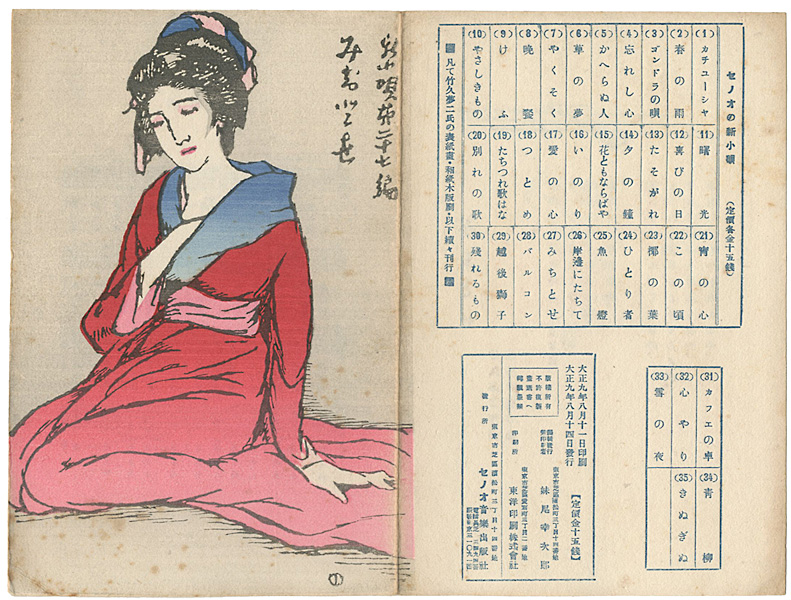 セノオの新小唄 (定價各金十五錢)
(1) カチューシャ
(2) 春の雨
(3) ゴンドラの唄
(4) 忘れし心
(5) かへらぬ人
(6) 草の夢
(7) やくそく
(8) 晩鐘
(9) けふ
(10) やさしきもの
(11) 曙光
(12) 喜びの日
(13) たそがれ
(14) 夕の鐘
(15) 花ともならばや
(16) いのり
(17) 愛の心
(18) つとめ
(19) たちつれ歌はな
(20) 別れの歌
(21) 宵の心
(22) この頃
(23) 椰の葉
(24) ひとり者
(25) 魚燈
(26) 岸邊にたちて
(27) みちとせ
(28) バルコン
(29) 越後獅子
(30) 殘れるもの
凡て竹久夢二氏の表紙畫・和紙木版刷・以下續々刊行
(31) カフエの卓
(32) 心やり
(33) 雪の夜
(34) 青柳
(35) きぬぎぬ
大正九年八月十一日印刷
大正九年八月十四日發行
【定價金十五錢】
妹尾幸次郎
印刷所
東洋印刷株式會社
發行所
東京市芝區濱松町三丁目十四番地
セノオ音樂出版社
新小唄第二十七編
みちとせ